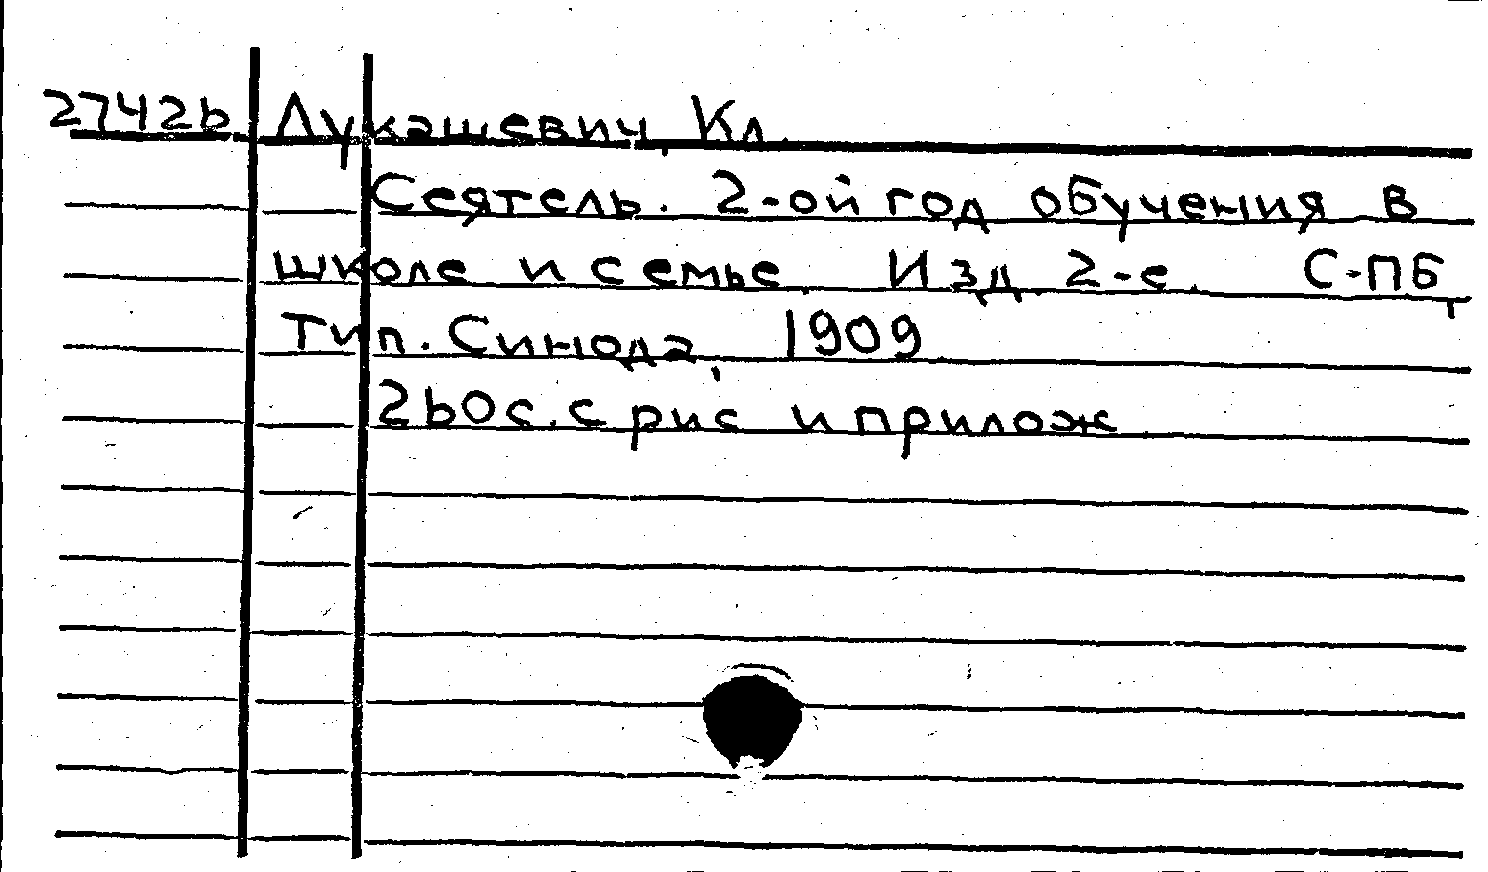 27426 Лукашевич, Кл.
Сеятель. 2-ой год обучения в
школе и семье. Изд. 2-е. С-ПБ,
Тип. Синода, 1909
260 с. с рис и прилож